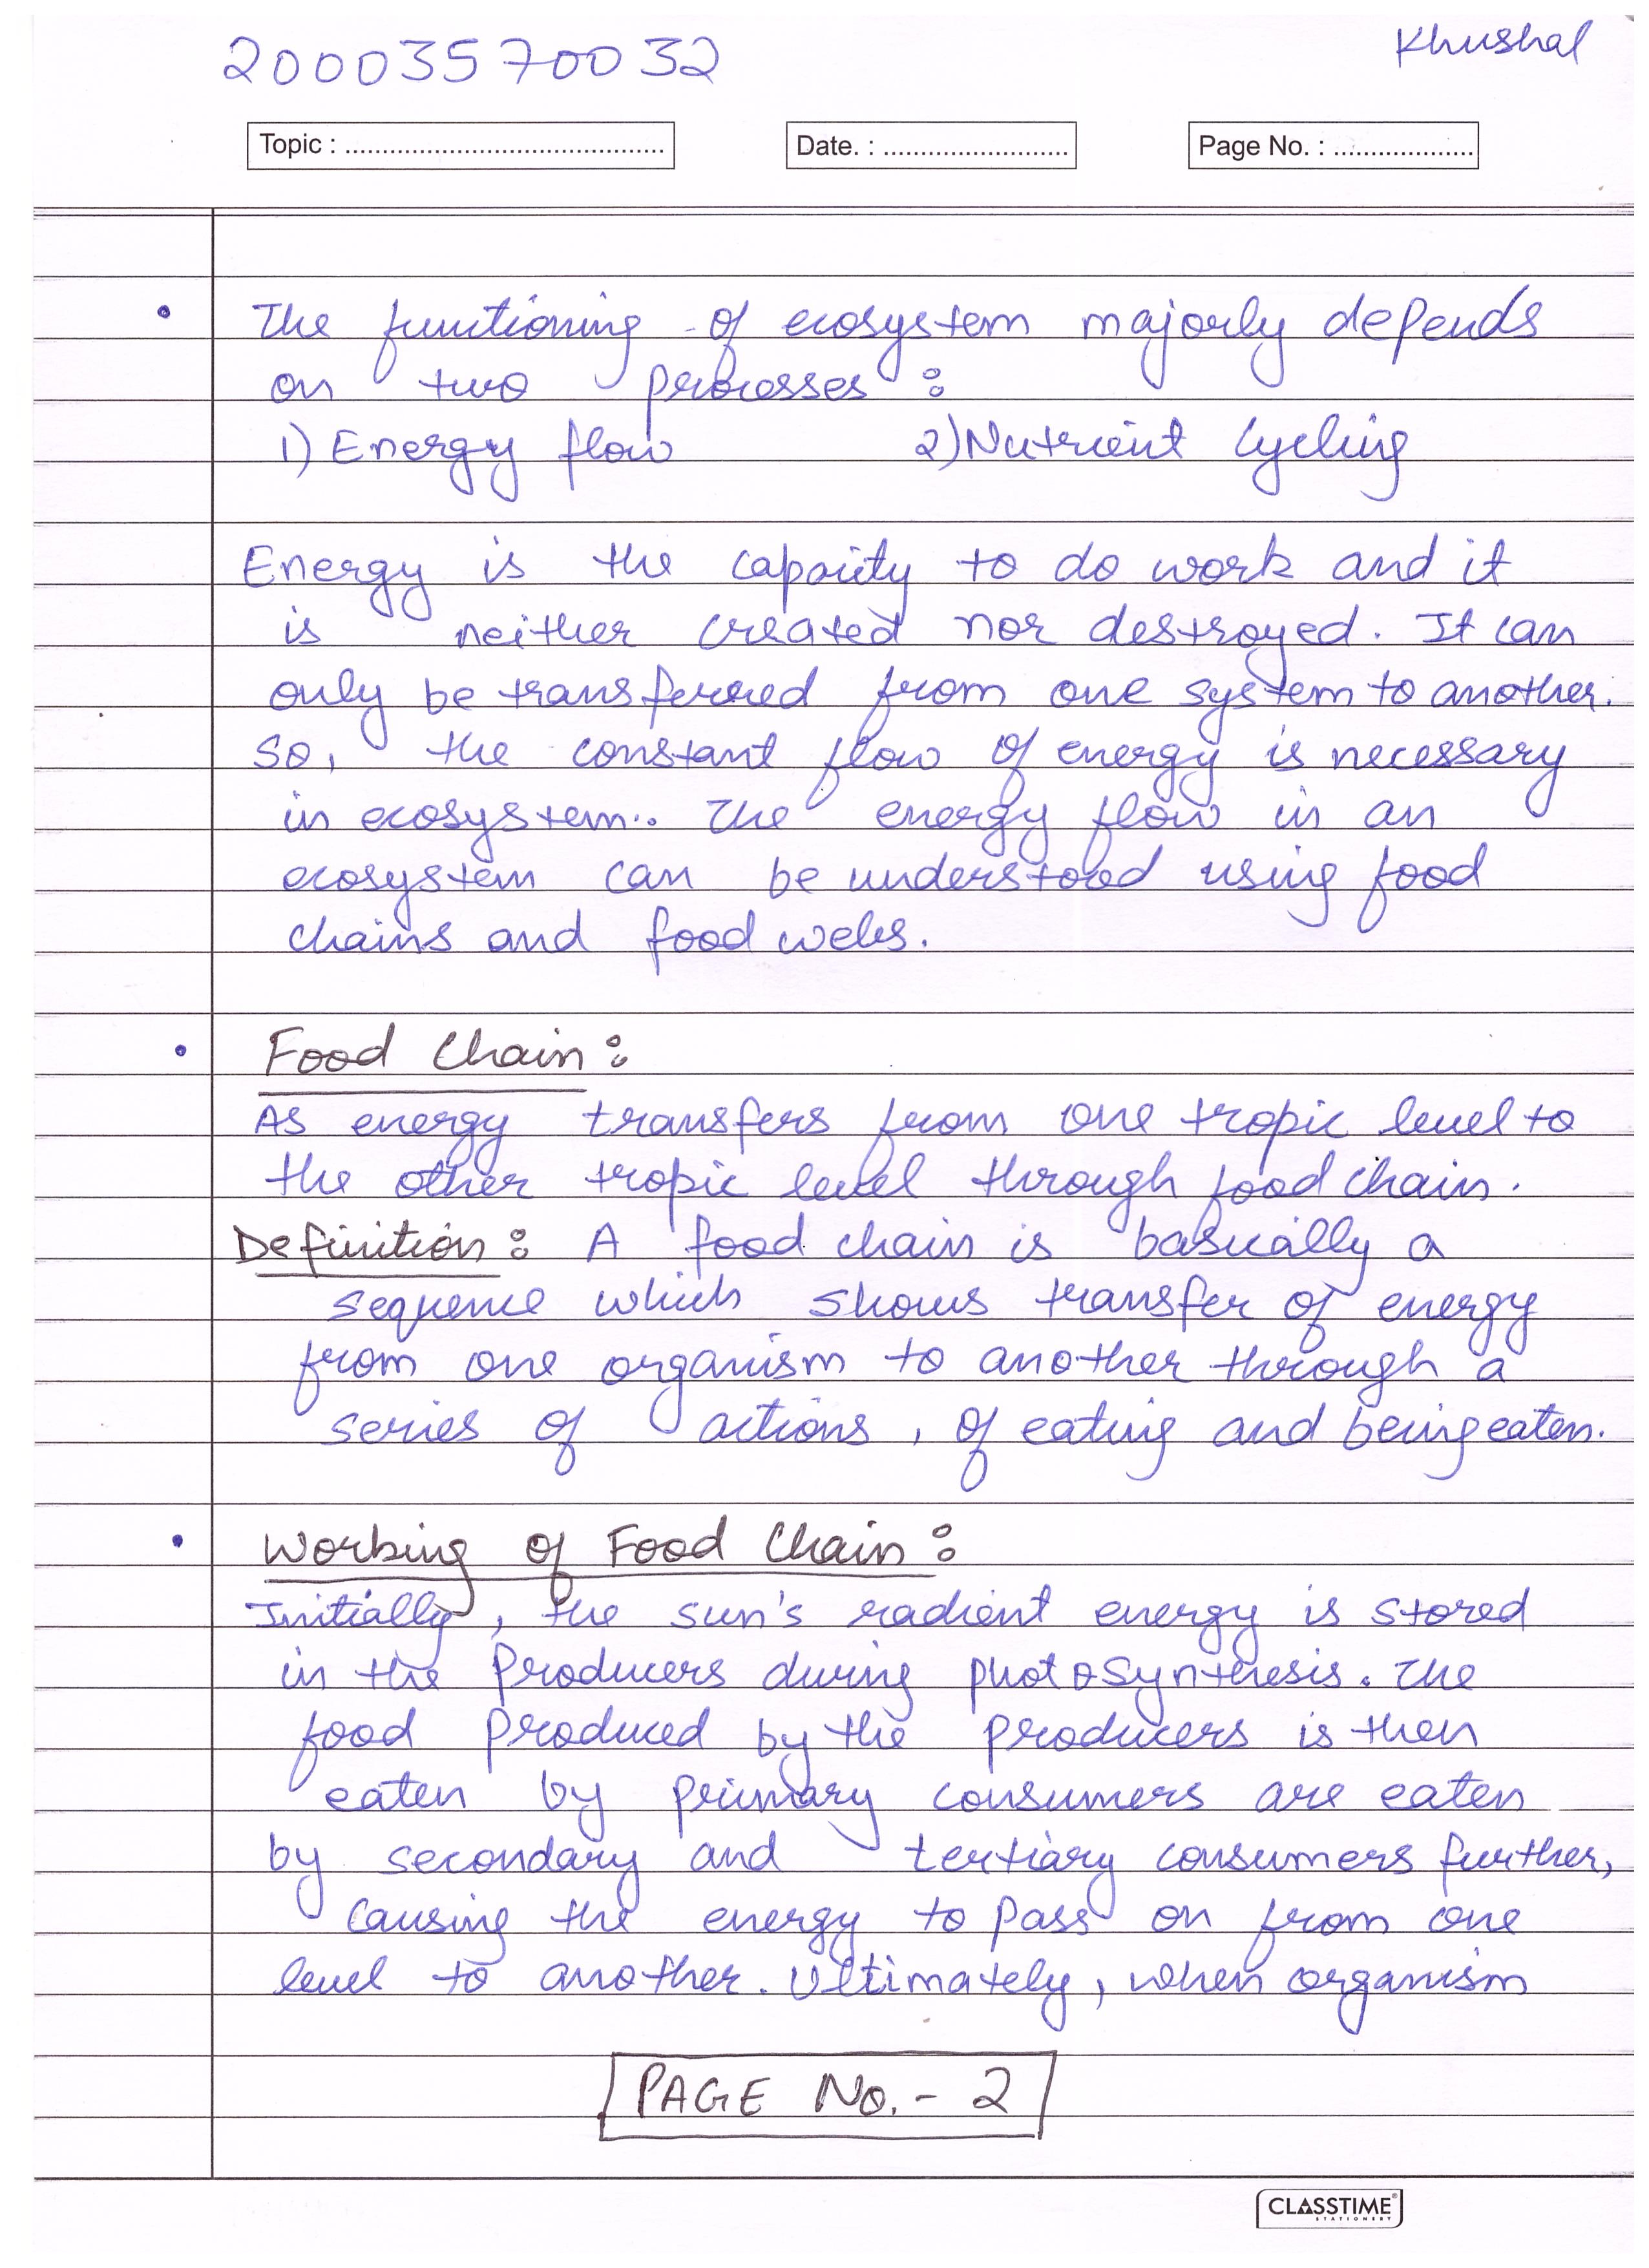 20003570032
Khushal
Topic : ..........................................
Date. : .........................
Page No. : ...................
• The functioning of ecosystem majorly depends
on two processes :
1) Energy flow 2) Nutrient Cycling
Energy is the capacity to do work and it
is neither created nor destroyed. It can
only be transferred from one system to another.
So, the constant flow of energy is necessary
in ecosystem.. The energy flow in an
ecosystem can be understood using food
chains and food webs.
• Food Chain :
As energy transfers from one tropic level to
the other tropic level through food chain.
Definition : A food chain is basically a
sequence which shows transfer of energy
from one organism to another through a
series of actions, of eating and being eaten.
• Working of Food Chain :
Initially, the sun's radient energy is stored
in the Producers during photosynthesis. The
food produced by the producers is then
eaten by primary consumers are eaten
by secondary and tertiary consumers further,
causing the energy to pass on from one
level to another. Ultimately, when organism
PAGE No. - 2
CLASSTIME
STATIONERY